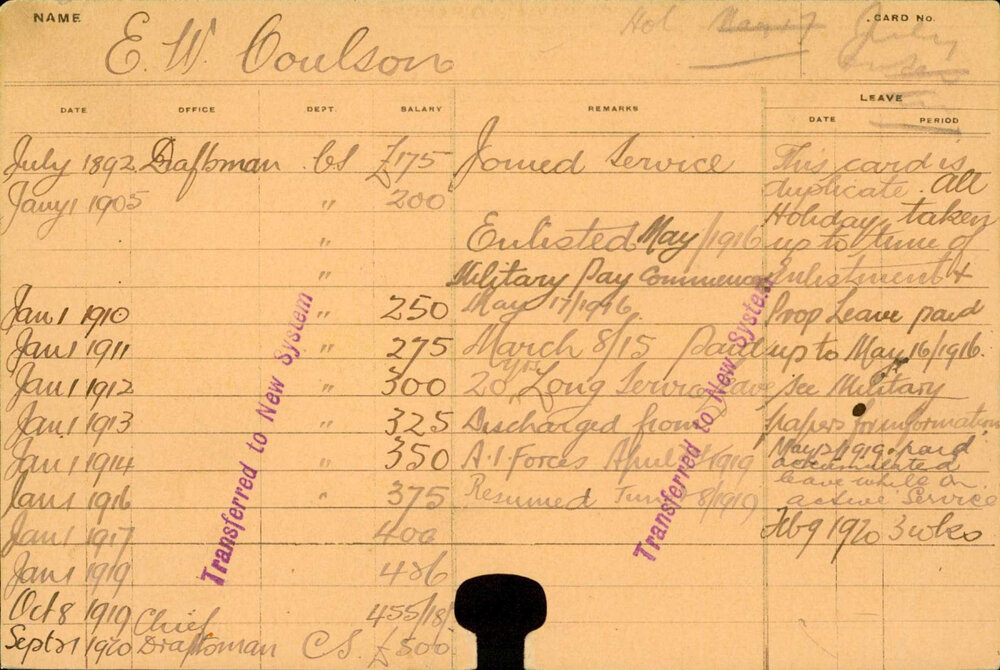 NAME
CARD NO.
E. W. Coulson
Hol
July
DATE OFFICE DEPT. SALARY REMARKS LEAVE
DATE PERIOD
July 1892 Draftsman C.S. £175 Joined Service This card is
duplicate. All
Jany 1 1905 " 200 Holiday taken
" Enlisted May/1916 up to time of
" Military Pay commenced Enlistment &
Jan 1 1910 250 May 17/1916 Prop Leave paid
Jan 1 1911 " 275 March 8/15 paid up to May 16/1916.
Jan 1 1912 " 300 20 yrs Long Service Leave See Military
Jan 1 1913 " 325 Discharged from papers for information
Jan 1 1914 " 350 A.I Forces April /1919 May /1919 paid
accumulated
Jan 1 1916 " 375 Resumed June 8/1919 leave while on
active Service
Jan 1 1917 400 Feb 9 1920 3 wks
Jan 1 1919 426
Oct 8 1919 455/18/
Sept 21 1920 Chief
Draftsman C.S. £500
Transferred to New System
Transferred to New System